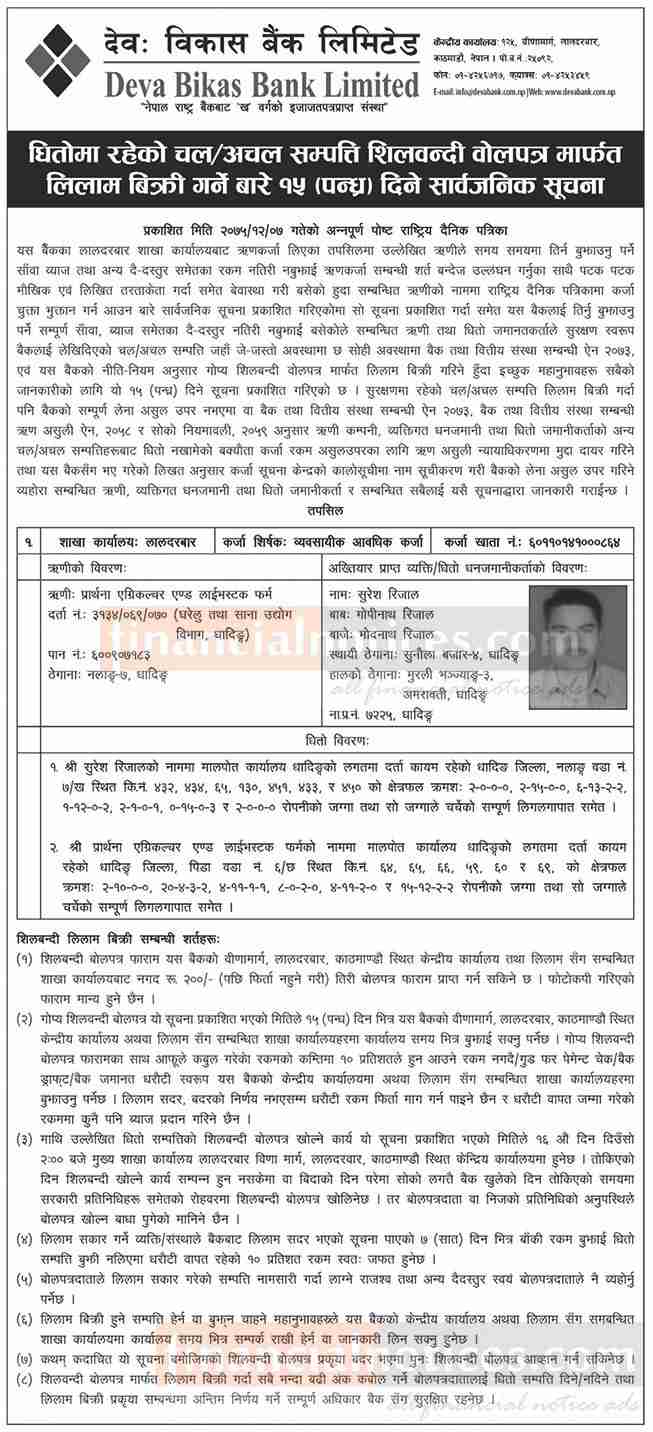 देवः विकास बैंक लिमिटेड
Deva Bikas Bank Limited
"नेपाल राष्ट्र बैंकबाट 'ख' वर्गको इजाजतपत्रप्राप्त संस्था"
केन्द्रीय कार्यालयः १२५, वीणामार्ग, लालदरबार,
काठमाडौं, नेपाल । पो.ब.नं.:२५०९२,
E-mail: info@devabank.com.np|Web: www.devabank.com.np
धितोमा रहेको चल/अचल सम्पत्ति शिलवन्दी वोलपत्र मार्फत
लिलाम बिक्री गर्ने बारे १५ (पन्ध्र) दिने सार्वजनिक सूचना
प्रकाशित मिति २०७५/१२/०७ गतेको अन्नपूर्ण पोष्ट राष्ट्रिय दैनिक पत्रिका
यस बैंकका लालदरबार शाखा कार्यालयबाट ऋणकर्जा लिएका तपसिलमा उल्लेखित ऋणीले समय समयमा तिर्न बुझाउनु पर्ने
साँवा ब्याज तथा अन्य दै-दस्तुर समेतका रकम नतिरी नबुझाई ऋणकर्जा सम्बन्धी शर्त बन्देज उल्लंघन गर्नुका साथै पटक पटक
मौखिक एवं लिखित तरताकेता गर्दा समेत बेवास्था गरी बसेको हुदा सम्बन्धित ऋणीको नाममा राष्ट्रिय दैनिक पत्रिकामा कर्जा
चुक्ता भुक्तान गर्न आउन बारे सार्वजनिक सूचना प्रकाशित गरिएकोमा सो सूचना प्रकाशित गर्दा समेत यस बैंकलाई तिर्नु बुझाउनु
पर्ने सम्पूर्ण साँवा, ब्याज समेतका दै-दस्तुर नतिरी नबुझाई बसेकोले सम्बन्धित ऋणी तथा धितो जमानतकर्ताले सुरक्षण स्वरूप
बैंकलाई लेखिदिएको चल/अचल सम्पति जहाँ जे-जस्तो अवस्थामा छ सोही अवस्थामा बैंक तथा वित्तीय संस्था सम्बन्धी ऐन २०७३,
एवं यस बैंकको नीति-नियम अनुसार गोप्य शिलवन्दी वोलपत्र मार्फत लिलाम बिक्री गरिने हुँदा इच्छुक महानुभावहरू सबैको
जानकारीको लागि यो १५ (पन्ध्र) दिने सूचना प्रकाशित गरिएको छ । सुरक्षणमा रहेको चल/अचल सम्पति लिलाम बिक्री गर्दा
पनि बैंकको सम्पूर्ण लेना असुल उपर नभएमा वा बैंक तथा वित्तीय संस्था सम्बन्धी ऐन २०७३, बैंक तथा वित्तीय संस्था सम्बन्धी
ऋण असुली ऐन, २०५८ र सोको नियमावली, २०५९ अनुसार ऋणी कम्पनी, व्यक्तिगत धनजमानी तथा धितो जमानीकर्ताको अन्य
चल/अचल सम्पत्तिहरूबाट धितो नखामेको बक्यौता कर्जा रकम असुलउपरका लागि ऋण असुली न्यायाधिकरणमा मुद्दा दायर गरिने
तथा यस बैंकसँग भए गरेको लिखत अनुसार कर्जा सूचना केन्द्रको कालोसूचीमा नाम सूचीकरण गरी बैंकको लेना असुल उपर गरिने
व्यहोरा सम्बन्धित ऋणी, व्यक्तिगत धनजमानी तथा धितो जमानीकर्ता र सम्बन्धित सबैलाई यसै सूचनाद्वारा जानकारी गराईन्छ ।
तपसिल
१. शाखा कार्यालयः लालदरबार कर्जा शिर्षकः व्यवसायीक आवधिक कर्जा कर्जा खाता नं.: ६०११०१४१०००८६४
ऋणीको विवरणः अख्तियार प्राप्त व्यक्ति/धितो धनजमानीकर्ताको विवरणः
ऋणीः प्रार्थना एग्रिकल्चर एण्ड लाईभस्टक फर्म
दर्ता नं.: ३१३४/०६९/०७० (घरेलु तथा साना उद्योग
विभाग, धादिङ्ग)
पान नं.: ६००९०७१८३
ठेगानाः नलाङ्ग-७, धादिङ्ग
नामः सुरेश रिजाल
बाबुः गोपीनाथ रिजाल
बाजेः मोदनाथ रिजाल
स्थायी ठेगानाः सुनौला बजार-४, धादिङ्ग
हालको ठेगानाः मुरली भञ्ज्याङ्ग-३,
अमरावती, धादिङ्ग
ना.प्र.नं. ७२२५, धादिङ्ग
financialnotices.com
all financial notice ads
धितो विवरणः
१. श्री सुरेश रिजालको नाममा मालपोत कार्यालय धादिङ्गको लगतमा दर्ता कायम रहेको धादिङ जिल्ला, नलाङ्ग वडा नं.
७/ख स्थित कि.नं. ४३२, ४३४, ६५, १३०, ४५१, ४३३, र ४५० को क्षेत्रफल क्रमशः २-०-०-०, २-१५-०-०, ६-१३-२-२,
१-१२-०-२, २-१-०-१, ०-१५-०-३ र २-०-०-० रोपनीको जग्गा तथा सो जग्गाले चर्चेको सम्पूर्ण लिगलगापात समेत ।
२. श्री प्रार्थना एग्रिकल्चर एण्ड लाईभस्टक फर्मको नाममा मालपोत कार्यालय धादिङ्गको लगतमा दर्ता कायम
रहेको धादिङ्ग जिल्ला, पिडा वडा नं. ६/छ स्थित कि.नं. ६४, ६५, ६६, ५९, ६० र ६९, को क्षेत्रफल
क्रमशः २-१०-०-०, २०-४-३-२, ४-११-१-१, ८-०-२-०, ४-११-२-० र १५-१२-२-२ रोपनीको जग्गा तथा सो जग्गाले
चर्चेको सम्पूर्ण लिगलगापात समेत ।
शिलबन्दी लिलाम बिक्री सम्बन्धी शर्तहरूः
(१) शिलबन्दी बोलपत्र फाराम यस बैंकको वीणामार्ग, लालदरबार, काठमाण्डौ स्थित केन्द्रीय कार्यालय तथा लिलाम सँग सम्बन्धित
शाखा कार्यालयबाट नगद रू. २००/- (पछि फिर्ता नहुने गरी) तिरी बोलपत्र फाराम प्राप्त गर्न सकिने छ । फोटोकपी गरिएको
फाराम मान्य हुने छैन ।
(२) गोप्य शिलवन्दी बोलपत्र यो सूचना प्रकाशित भएको मितिले १५ (पन्ध्र) दिन भित्र यस बैंकको वीणामार्ग, लालदरबार, काठमाण्डौ स्थित
केन्द्रीय कार्यालय अथवा लिलाम सँग सम्बन्धित शाखा कार्यालयहरुमा कार्यालय समय भित्र बुझाई सक्नु पर्नेछ । गोप्य शिलवन्दी
बोलपत्र फारामका साथ आफूले कबुल गरेको रकमको कम्तिमा १० प्रतिशतले हुन आउने रकम नगदै/गुड फर पेमेन्ट चेक/बैंक
ड्राफ्ट/बैंक जमानत धरौटी स्वरूप यस बैंकको केन्द्रीय कार्यालयमा अथवा लिलाम सँग सम्बन्धित शाखा कार्यालयहरुमा
बुझाउनु पर्नेछ । लिलाम सदर, बदरको निर्णय नभएसम्म धरौटी रकम फिर्ता माग गर्न पाइने छैन र धरौटी वापत जम्मा गरेको
रकममा कुनै पनि ब्याज प्रदान गरिने छैन ।
(३) माथि उल्लेखित धितो सम्पत्तिको शिलबन्दी बोलपत्र खोल्ने कार्य यो सूचना प्रकाशित भएको मितिले १६ औं दिन दिउँसो
२:०० बजे मुख्य शाखा कार्यालय लालदरबार विणा मार्ग, लालदरवार, काठमाण्डौ स्थित केन्द्रिय कार्यालयमा हुनेछ । तोकिएको
दिन शिलबन्दी खोल्ने कार्य सम्पन्न हुन नसकेमा वा बिदाको दिन परेमा सोको लगत्तै बैंक खुलेको दिन तोकिएको समयमा
सरकारी प्रतिनिधिहरू समेतको रोहवरमा शिलबन्दी बोलपत्र खोलिनेछ । तर बोलपत्रदाता वा निजको प्रतिनिधिको अनुपस्थिले
बोलपत्र खोल्न बाधा पुगेको मानिने छैन ।
(४) लिलाम सकार गर्ने व्यक्ति/संस्थाले बैंकबाट लिलाम सदर भएको सूचना पाएको ७ (सात) दिन भित्र बाँकी रकम बुझाई धितो
सम्पति बुझी नलिएमा धरौटी वापत रहेको १० प्रतिशत रकम स्वतः जफत हुनेछ ।
(५) बोलपत्रदाताले लिलाम सकार गरेको सम्पति नामसारी गर्दा लाग्ने राजश्व तथा अन्य दैदस्तुर स्वयं बोलपत्रदाताले नै व्यहोर्नु
पर्नेछ ।
(६) लिलाम बिक्री हुने सम्पति हेर्न वा बुझ्न चाहने महानुभावहरुले यस बैंकको केन्द्रीय कार्यालय अथवा लिलाम सँग सम्बन्धित
शाखा कार्यालयमा कार्यालय समय भित्र सम्पर्क राखी हेर्न वा जानकारी लिन सक्नु हुनेछ ।
(७) कथम् कदाचित यो सूचना बमोजिमको शिलवन्दी बोलपत्र प्रकृया बदर भएमा पुनः शिलवन्दी बोलपत्र आव्हान गर्न सकिनेछ ।
(८) शिलवन्दी बोलपत्र मार्फत लिलाम बिक्री गर्दा सबै भन्दा बढी अंक कबोल गर्ने बोलपत्रदातालाई धितो सम्पत्ति दिने/नदिने तथा
लिलाम बिक्री प्रकृया सम्बन्धमा अन्तिम निर्णय गर्ने सम्पूर्ण अधिकार बैंक सँग सुरक्षित रहनेछ ।
financialnotices.com
all financial notice ads